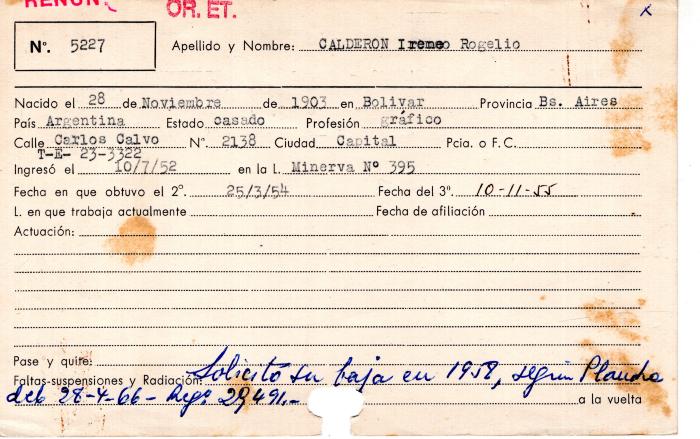 RENUN
OR. ET.
x
Nº. 5227
Apellido y Nombre: CALDERON Ireneo Rogelio
Nacido el 28 de Noviembre de 1903 en Bolivar Provincia Bs. Aires
País Argentina Estado casado Profesión gráfico
Calle Carlos Calvo Nº. 2138 Ciudad Capital Pcia. o F. C.
T-E- 23-3322
Ingresó el 10/7/52 en la L. Minerva Nº 395
Fecha en que obtuvo el 2º. 25/3/54 Fecha del 3º. 10-11-55
L. en que trabaja actualmente Fecha de afiliación
Actuación:
Pase y quite:
Faltas-suspensiones y Radiación: Solicitó su baja en 1958, según Plancha
del 28-4-66 - Regº 29,491.-
a la vuelta